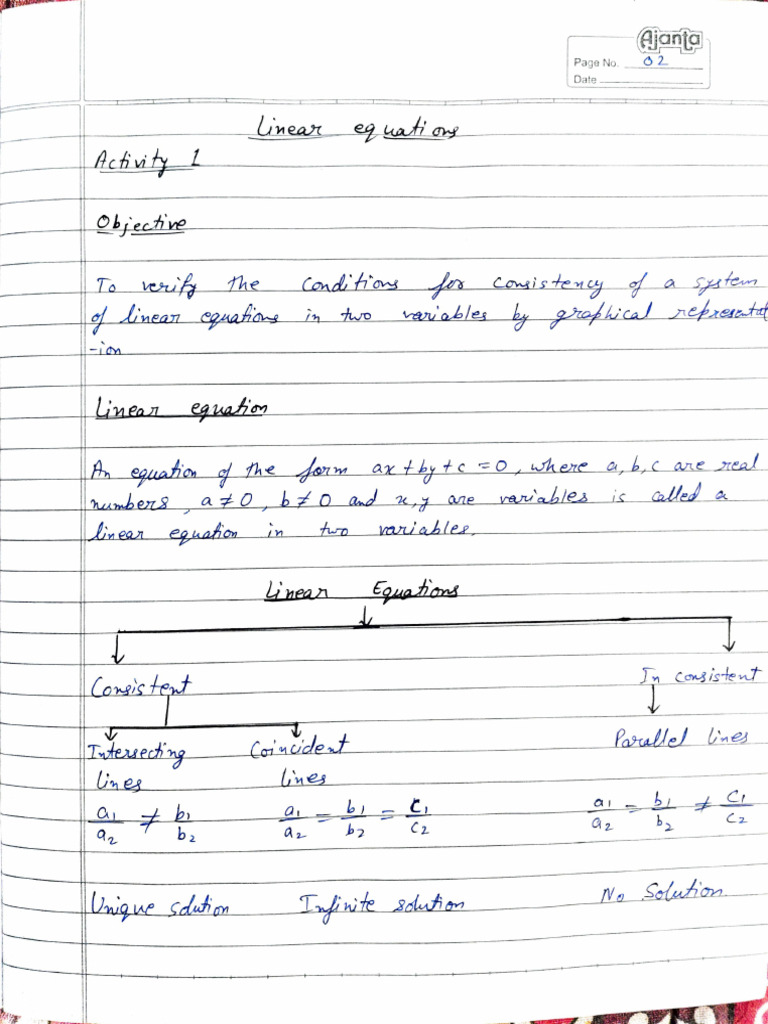 Ajanta
Page No. 02
Date
Linear equations
Activity 1
Objective
To verify the conditions for consistency of a system
of linear equations in two variables by graphical representat
-ion
Linear equation
An equation of the form ax+by+c=0, where a, b, c are real
numbers, a≠0, b≠0 and x, y are variables is called a
linear equation in two variables.
Linear Equations
Consistent In consistent
Intersecting Coincident Parallel lines
lines lines
a1/a2 ≠ b1/b2 a1/a2 = b1/b2 = c1/c2 a1/a2 = b1/b2 ≠ c1/c2
Unique solution Infinite solution No Solution.